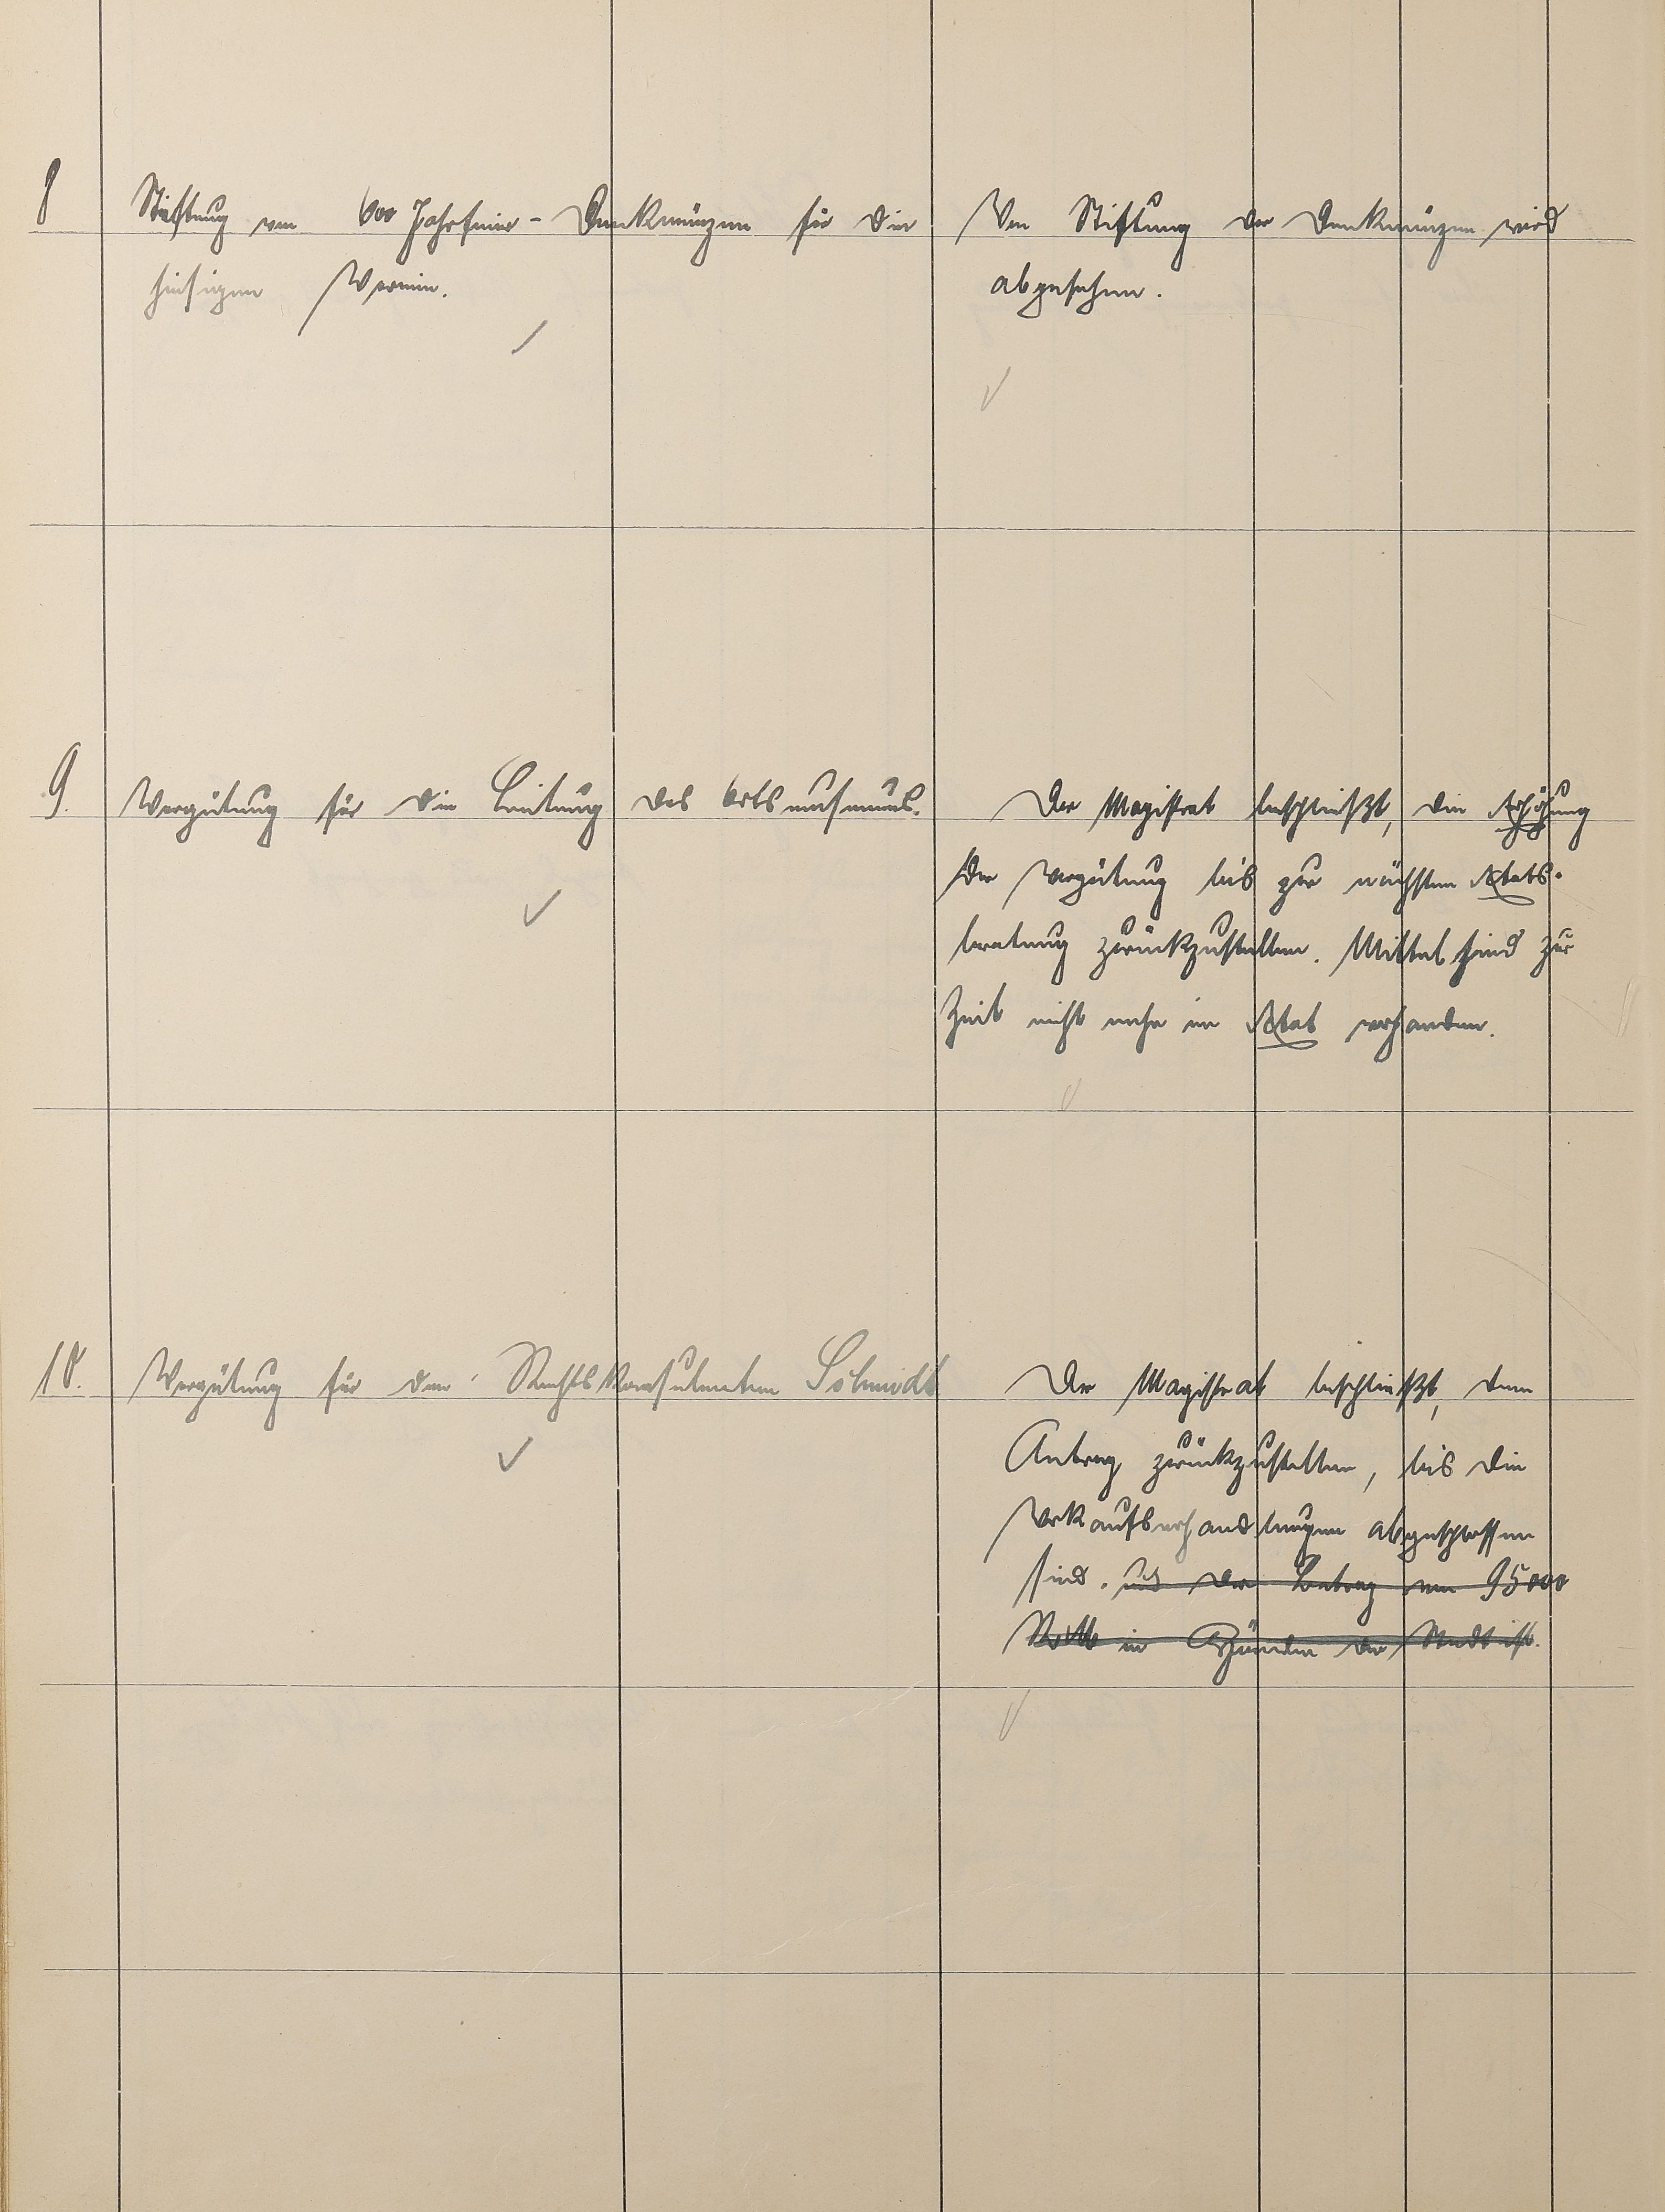 8
Stiftung von 600 Jahrfeier - Denkmünzen für die
hiesigen Vereine.
Von Stiftung der Denkmünzen wird
abgesehen.
9.
Vergütung für die Leitung des Ortsmuseums.
Der Magistrat beschließt, die Erhöhung
der Vergütung bis zur nächsten Etats-
beratung zurückzustellen. Mittel sind zur
Zeit nicht mehr im Etat vorhanden.
10.
Vergütung für den Rechtskonsulenten Schmidt
Der Magistrat beschließt, den
Antrag zurückzustellen, bis die
Verkaufsverhandlungen abgeschlossen
sind. und der Betrag von 95000
in Händen der Stadt ist.